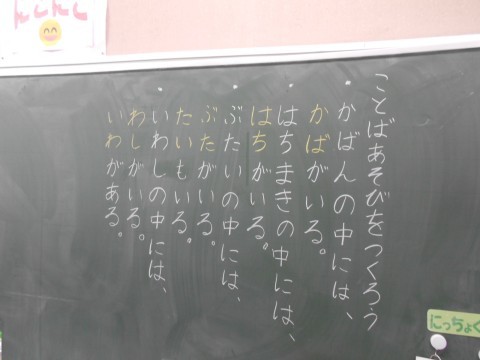 ことばあそびをつくろう
かばんの中には、
かばがいる。
はちまきの中には、
はちがいる。
ぶたいの中には、
ぶたがいる。
たいもいる。
いわしの中には、
わしがいる。
いわがある。
にっちょく